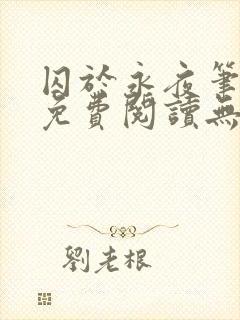 囚於永夜筆
免費閱讀無
劉老根